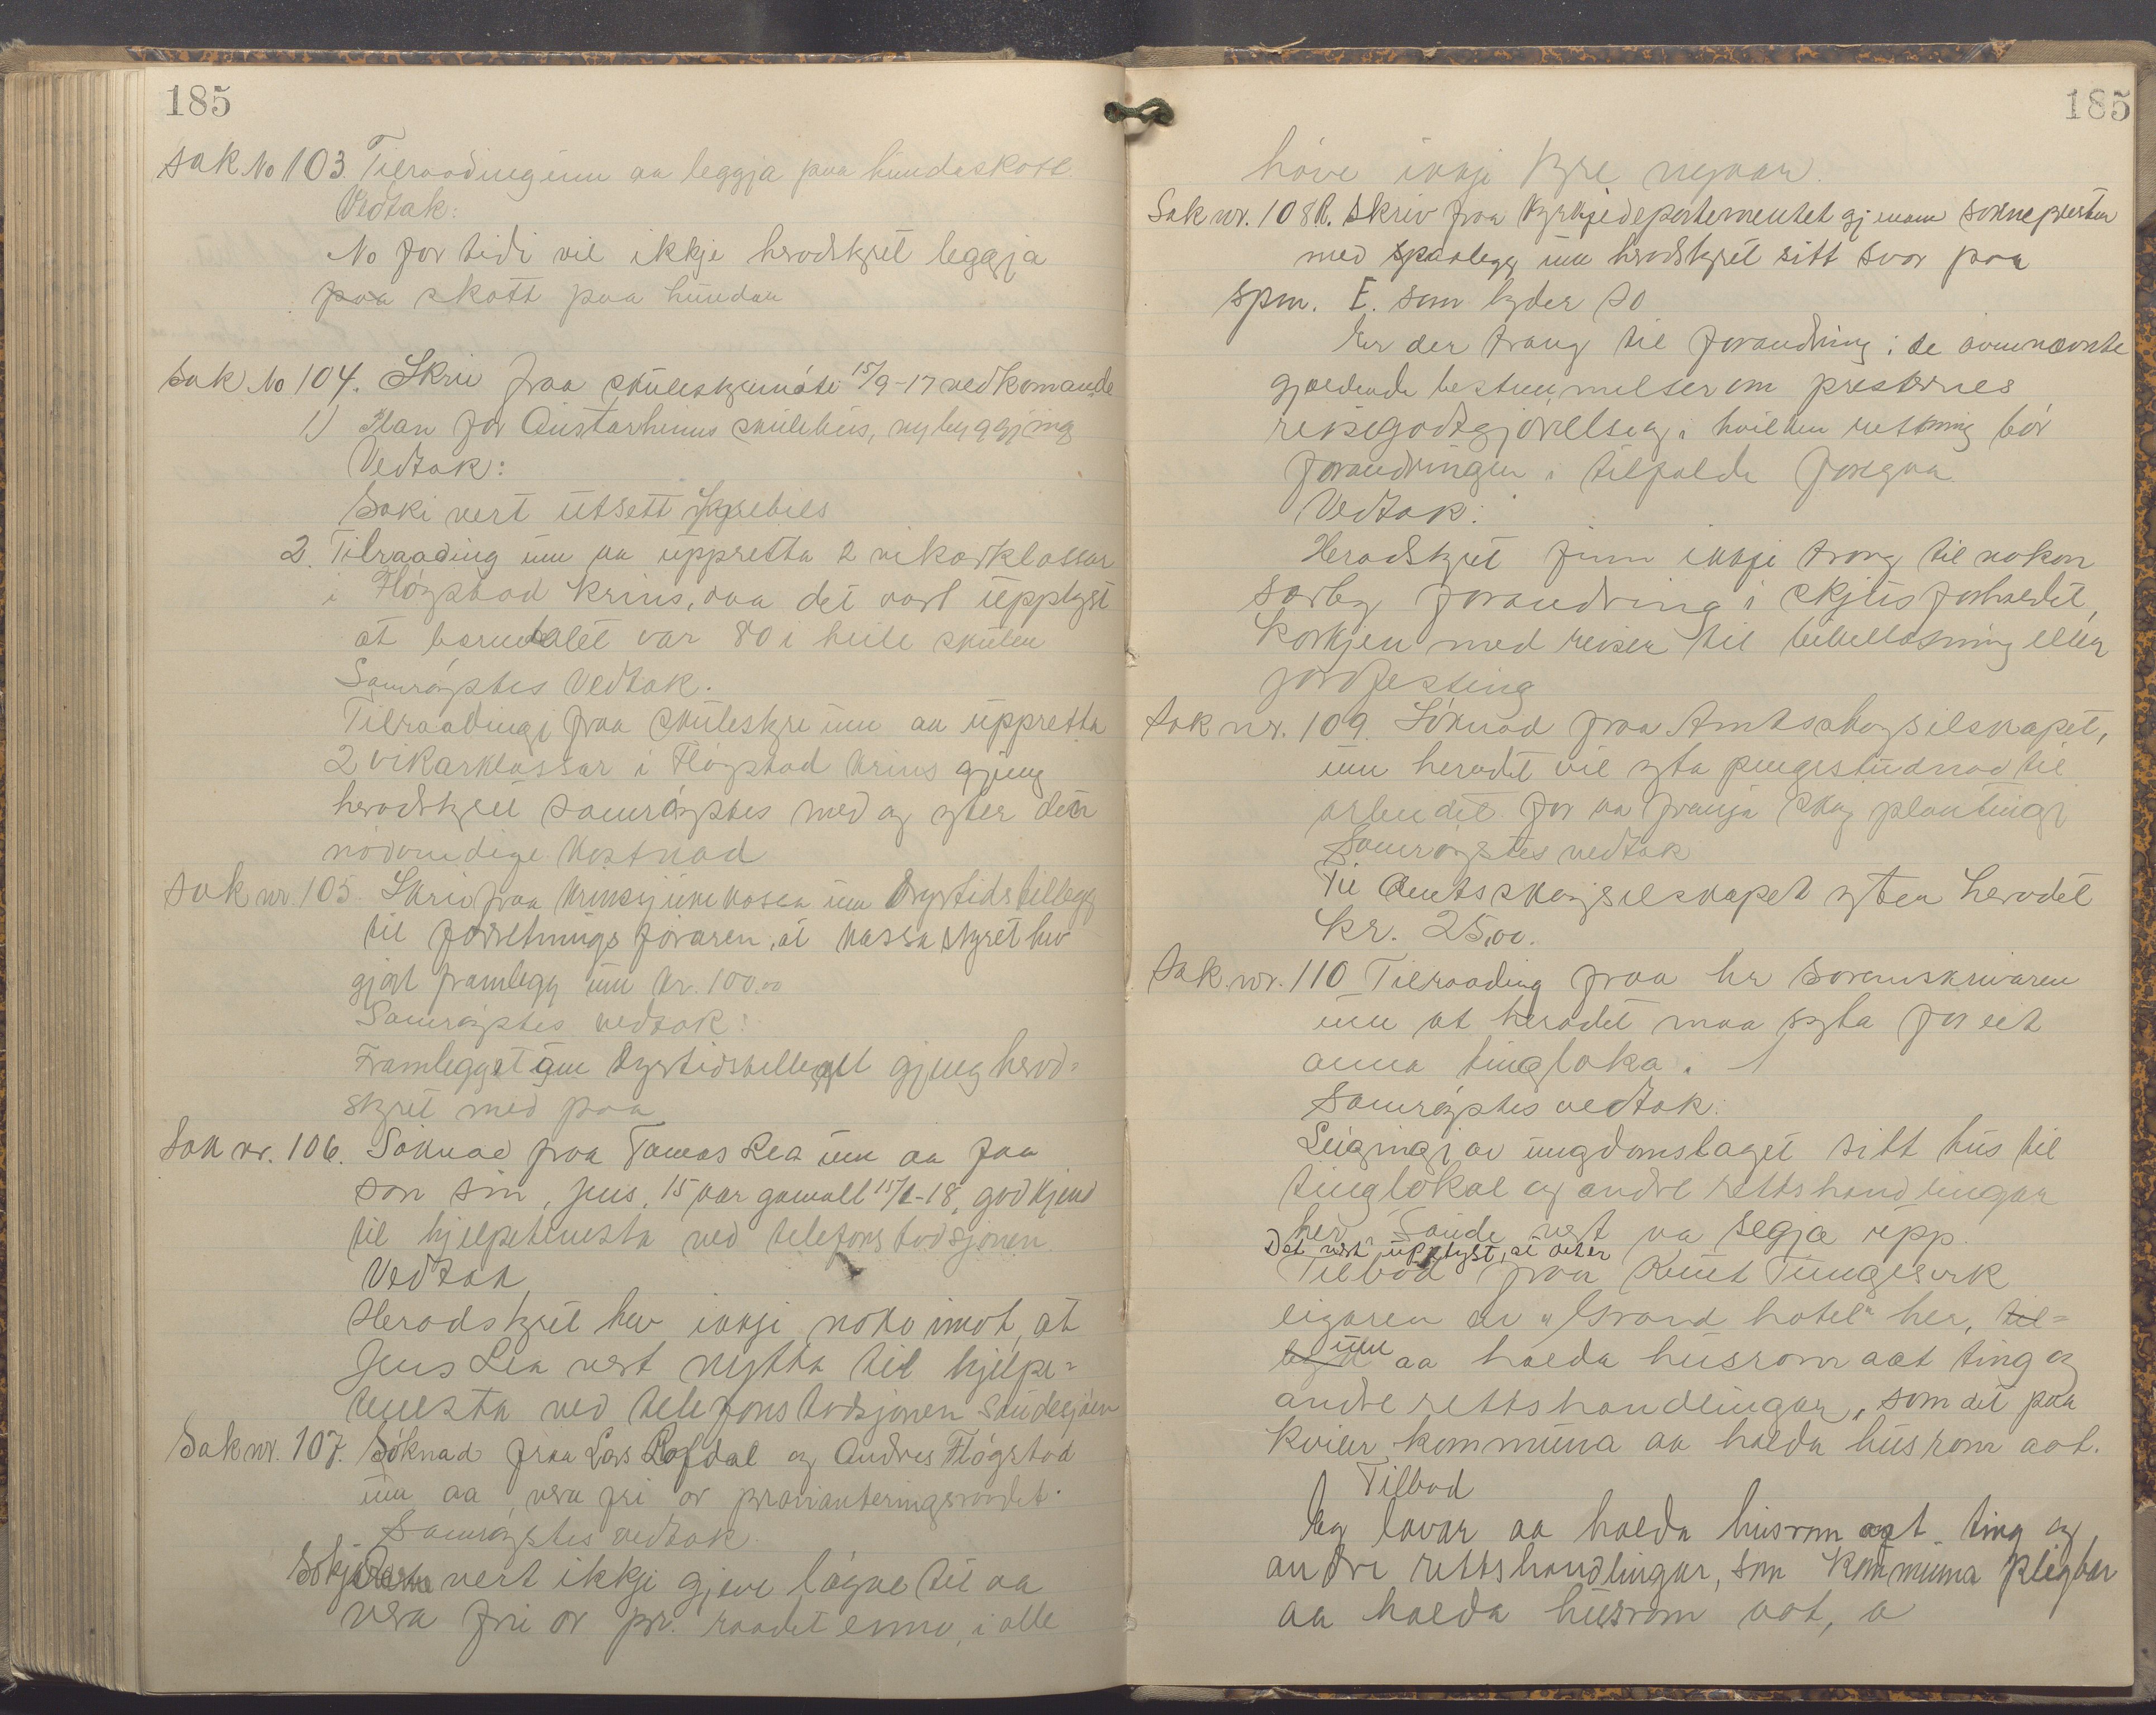 185
Sak No 103. Tilraading um aa leggja paa hundeskatt.
Vedtak:
No for tidi vil ikkje heradstyret leggja
paa skatt paa hundar
Sak No 104. Skriv fraa skulestyremøte 15/9-17 vedkomande
1) Plan for Austarheims skulehus, nybyggjing
Vedtak:
Saki vert utsett fyrebils
2. Tilraading um aa uppretta 2 vikarklassar
i Fløgstad krins, daa det vart upplyst
at barnetalet var 80 i heile skulen
Samrøystes Vedtak.
Tilraadingi fraa skulestyre um aa uppretta
2 vikarklassar i Fløgstad krins gjeng
heradstyret samrøystes med og yter den
nødvendige kostnad
Sak nr. 105. Skriv fraa krinssjukekassa um Dyrtidstillegg
til forretningsføraren, at kassastyret hev
gjort framlegg um kr. 100.00
Samrøystes vedtak:
Framlegget um Dyrtidstillegget gjeng herad=
styret med paa
Sak nr. 106. Søknad fraa Tomas Lea um aa faa
son sin, Jens, 15 aar gamall 15/1-18, godkjend
til hjelpetenesta ved telefonstadsjonen
Vedtak
Heradstyret hev ikkje noko imot, at
Jens Lea vert nytta til hjelpe=
tenesta ved telefonstadsjonen Saudesjøen
Sak nr. 107. Søknad fraa Lars Rafdal og Andres Fløgstad
um aa vera fri or provianteringsraadet.
Samrøystes vedtak.
Søkjarane vert ikkje gjeve løgve til aa
vera fri or pr. raadet enno, i alle
185
høve ikkje fyre nyaar.
Sak nr. 108. Skriv fraa Kyrkjedepartementet gjenom soknepresten
med paalegg um heradstyret sitt svar paa
spm. E. som lyder so
Er der trang til forandring i de ovennævnte
gjældende bestemmelser om presternes
reisegodtgjørelse og i hvilken retning bør
forandringen i tilfælde foregaa
Vedtak:
Heradstyret finn ikkje trong til nokon
særleg forandring i skjutsforhaldet,
korkje med reiser til bibellæsning eller
jordfesting
Sak nr. 109. Søknad fraa Amtsskogselskapet,
um heradet vil yta pengestudnad til
arbeidet for aa fremja skogplantingi
Samrøystes vedtak
Til Amtsskogselskapet yter heradet
kr. 25,00.
Sak nr. 110 Tilraading fraa hr sorenskrivaren
um at heradet maa syta for eit
anna tinglokale.
Samrøystes vedtak:
Leigingi av ungdomslaget sitt hus til
tinglokal og andre rettshandlingar
her i Saude vert aa segja upp.
Det vert upplyst, at det er
Tilbod fraa Knut Tungesvik
eigaren av "Grand hotel" her, til=
um aa halda husrom aat ting og
andre rettshandlingar, som det paa
kviler kommuna aa halda husrom aat.
Tilbod
Eg lovar aa halda husrom aat ting og
andre rettshandlingar, som kommuna pligtar
aa halda husrom aat, a